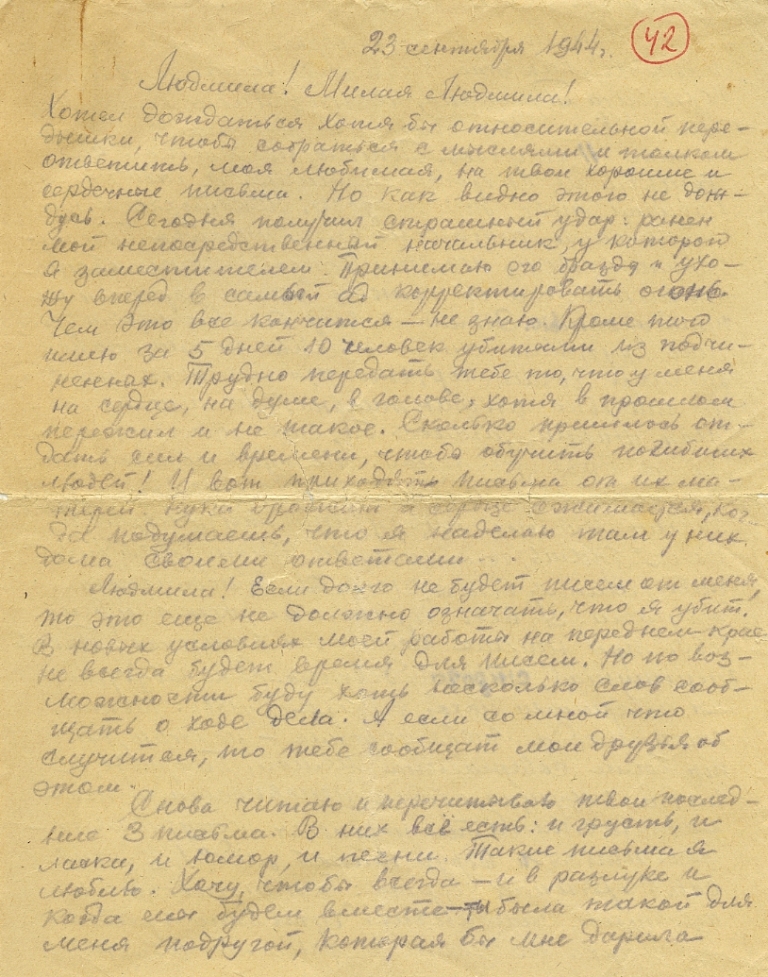 23 сентября 1944 г.
42
Людмила! Милая Людмила!
Хотел дождаться хотя бы относительной пере-
дышки, чтобы собраться с мыслями и толком
ответить, моя любимая, на твои хорошие и
сердечные письма. Но как видно этого не дож-
дусь. Сегодня получил страшный удар: ранен
мой непосредственный начальник, у которого
я заместителем. Принимаю его бразды и ухо-
жу вперед в самый ад корректировать огонь.
Чем это все кончится — не знаю. Кроме того
имею за 5 дней 10 человек убитыми из подчи-
ненных. Трудно передать тебе то, что у меня
на сердце, на душе, в голове, хотя в прошлом
пережил и не такое. Сколько пришлось от-
дать сил и времени, чтобы обучить погибших
людей! И вот приходят письма от их ма-
терей. Руки дрожат и сердце сжимается, ког-
да подумаешь, что я наделаю там у них
дома своими ответами...
Людмила! Если долго не будет писем от меня,
то это еще не должно означать, что я убит.
В новых условиях моей работы на переднем крае
не всегда будет время для писем. Но по воз-
можности буду хоть несколько слов сооб-
щать о ходе дела. А если со мной что
случится, то тебе сообщат мои друзья об
этом.
Снова читаю и перечитываю твои послед-
ние 3 письма. В них всё есть: и грусть, и
ласка, и юмор, и песни. Такие письма я
люблю. Хочу, чтобы всегда — и в разлуке и
когда мы будем вместе — ты была такой для
меня подругой, которая бы мне дарила